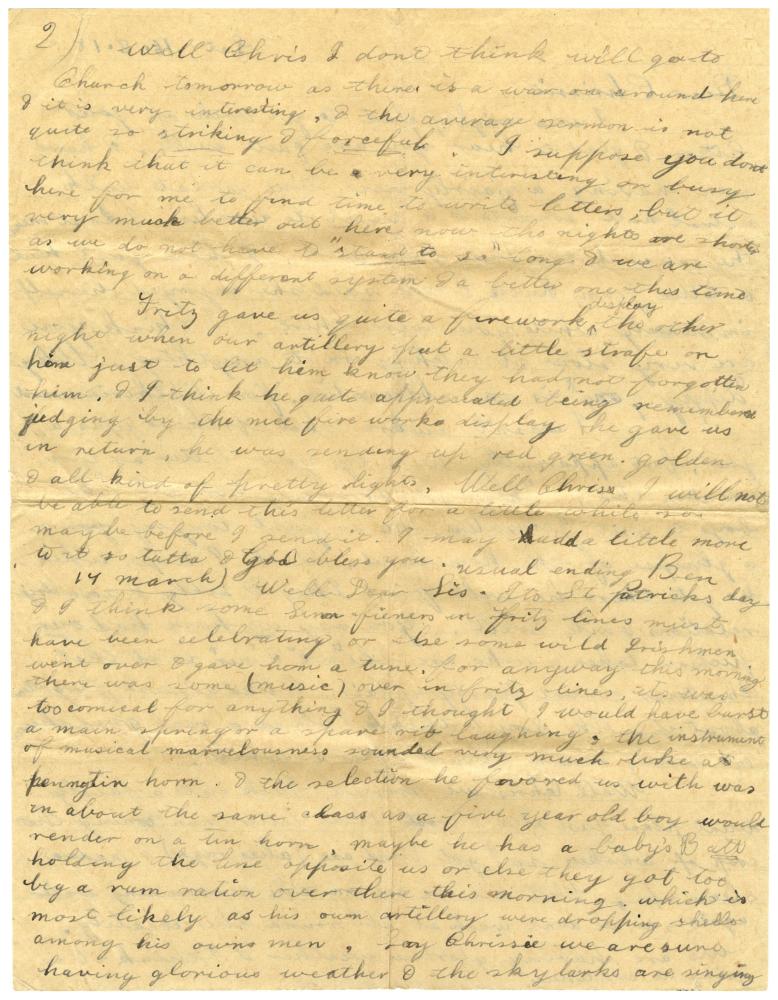 2)
Well Chris I dont think will go to
Church tomorrow as there is a war on around here
& it is very interesting, & the average sermon is not
quite so striking & forceful. I suppose you dont
think that it can be a very interesting or busy
here for me to find time to write letters, but it
very much better out here now the nights are shorter
as we do not have to "stand to so" long & we are
working on a different system & a better one this time
Fritz gave us quite a firework display the other
night when our artillery put a little strafe on
him just to let him know they had not forgotten
him. & I think he quite appreciated being remembered
judging by the nice fire works display he gave us
in return, he was sending up red green. golden
& all kind of pretty lights. Well Chriss I will not
be able to send this letter for a little while so
maybe before I send it. I may add a little more
to it so tatta & God bless you. usual ending Ben
17 march) Well Dear Sis. Its St Patricks day
& I think some Sinn fieners in fritz lines must
have been celebrating or else some wild Irishmen
went over & gave hom a tune. for anyway this morning
there was some (music) over in fritz lines, its was
too comical for anything & I thought I would have burst
a main spring or a spare rib laughing, the instrument
of musical marvelousness sounded very much like a
penny tin horn. & the selection he favored us with was
in about the same class as a five year old boy would
render on a tin horn, maybe he has a baby's Batt
holding the line opposite us or else they got too
big a rum ration over there this morning. which is
most likely as his own artillery were dropping shells
among his owns men, Say Chrissie we are sure
having glorious weather & the skylarks are singing